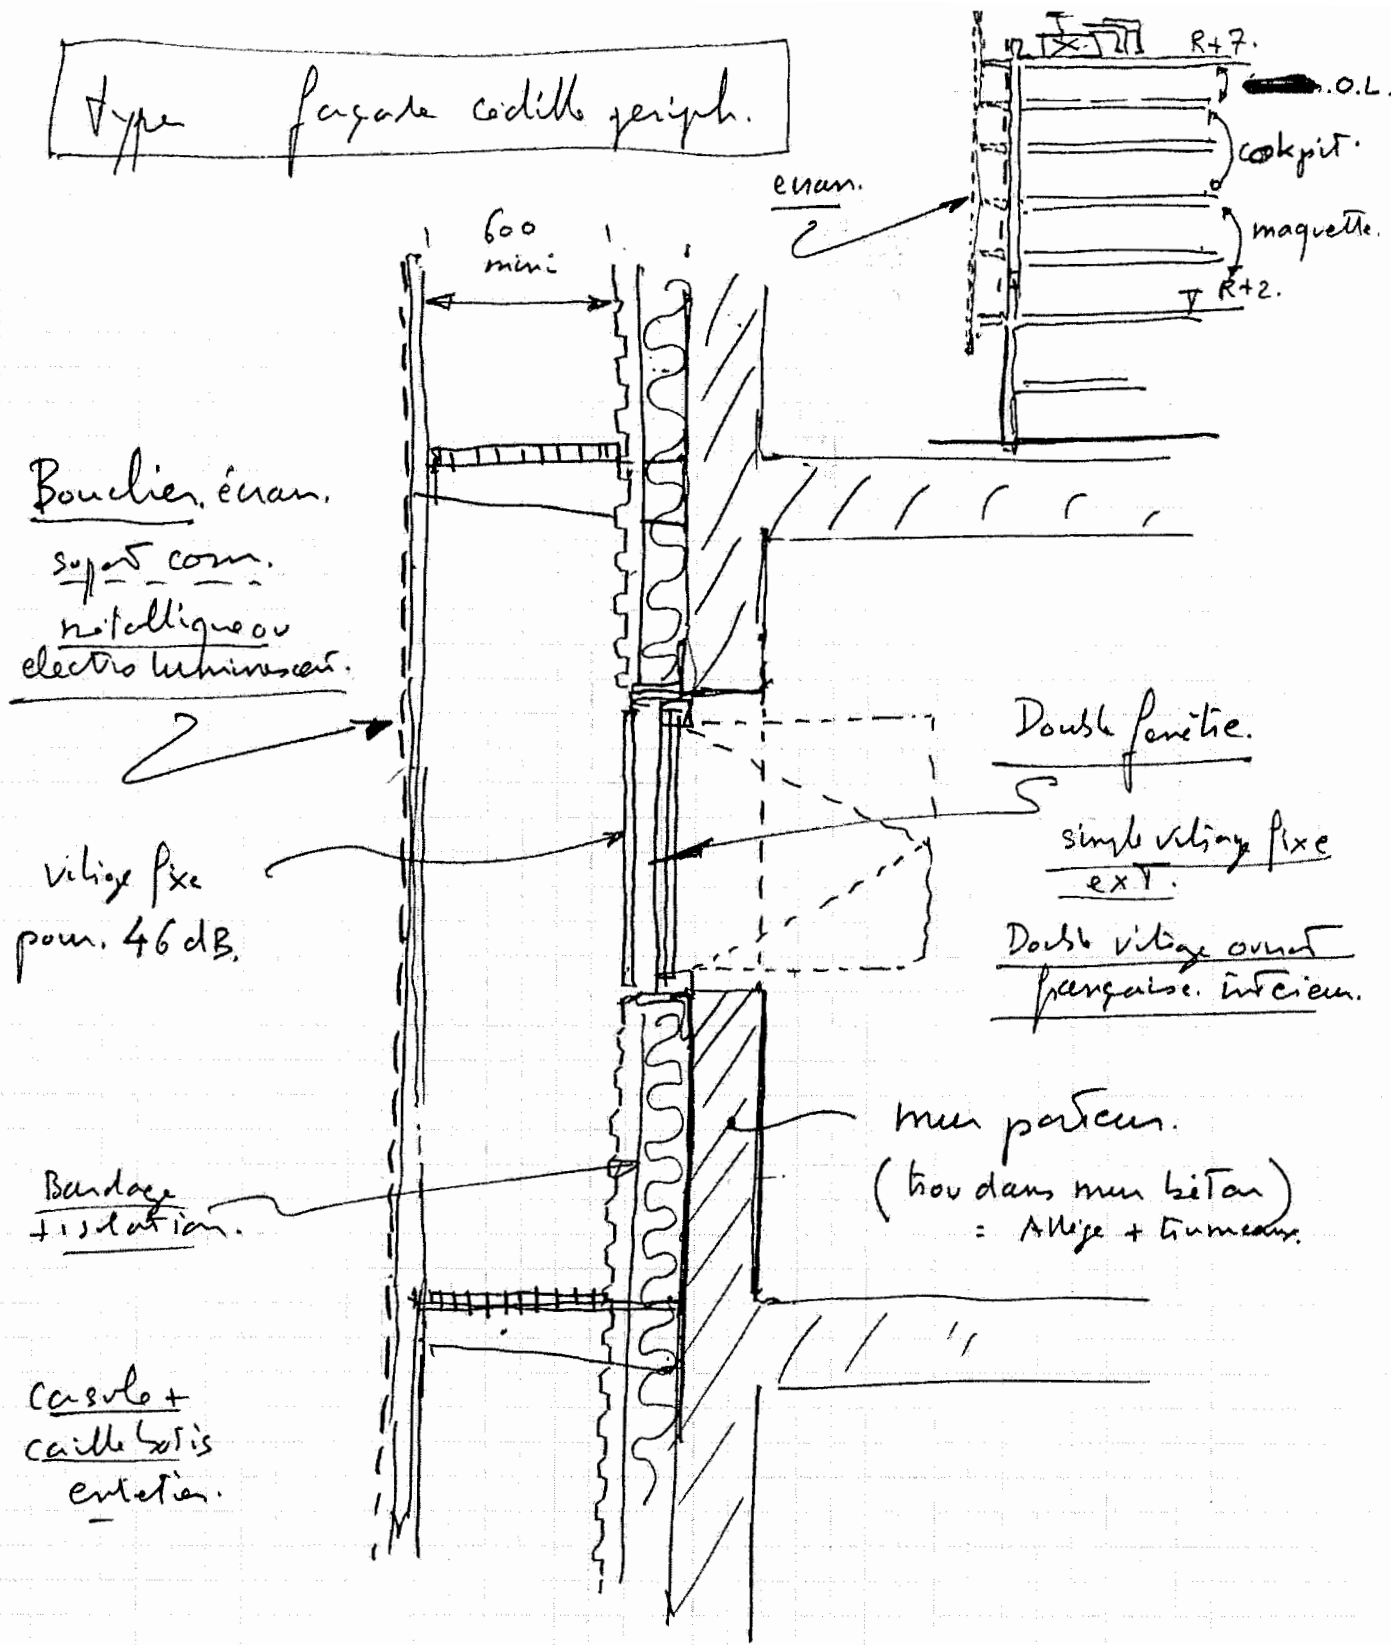 type façade cédille périph.
R+7.
.O.L.
cockpit.
écran.
maquette.
R+2.
600
mini
Bouclier écran.
support com.
métallique ou
electro luminescent.
Double fenêtre.
simple vitrage fixe
ext.
Double vitrage ouvrant
française intérieur.
vitrage fixe
pour. 46 dB.
mur porteur.
(trou dans mur béton)
= Allège + trumeaux.
Bardage
+ isolation.
Console +
caillebotis
entretien.